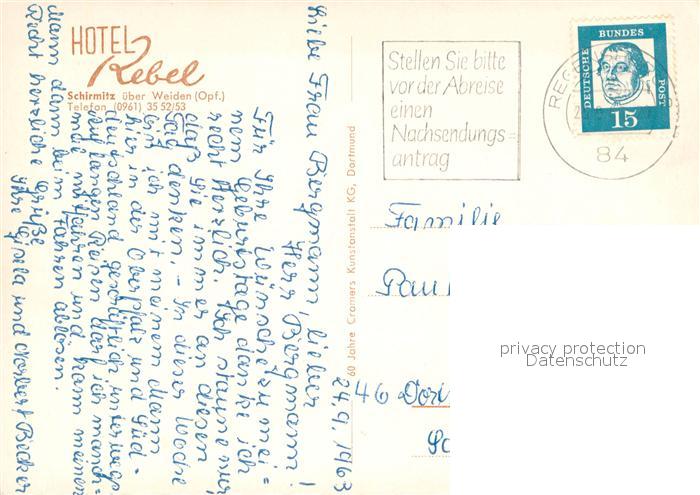 HOTEL
Rebel
Schirmitz über Weiden (Opf.)
Telefon (0961) 35 52/53
24.9.1963
Liebe Frau Bergmann, lieber
Herr Bergmann!
Für Ihre Wünsche zu mei=
nem Geburtstage danke ich
recht herzlich. Ich staune nur
daß Sie immer an diesen
Tag denken. - In dieser Woche
bin ich mit meinem Mann
hier in der Oberpfalz und Süd=
deutschland geschäftlich unterwegs
auf langen Reisen darf ich manch=
mal mitfahren und kann meinen
Mann dann beim Fahren ablösen.
Recht herzliche Grüße
Ihre Gisela und Norbert Bicker
60 Jahre Cramers Kunstanstalt KG, Dortmund
Stellen Sie bitte
vor der Abreise
einen
Nachsendungs=
antrag
REGEN
84
DEUTSCHE BUNDES POST
15
Familie
Pau
46 Dor
privacy protection
Datenschutz